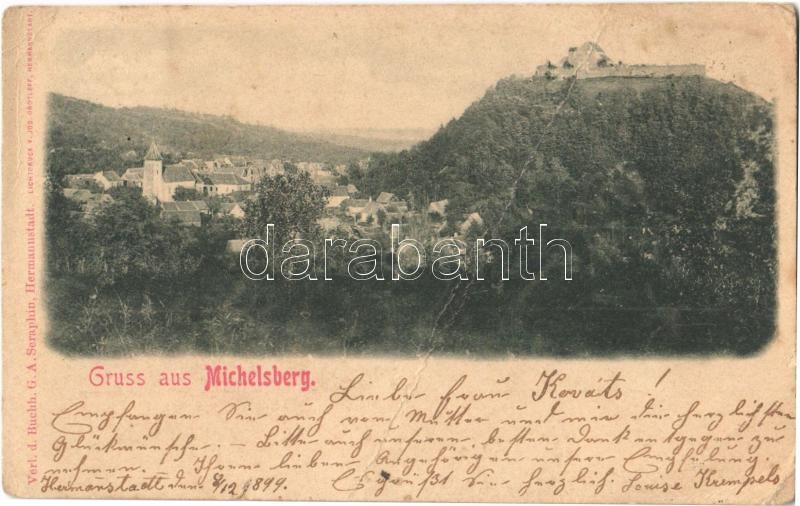 Verl. d. Buchh. G. A. Seraphin, Hermannstadt. LICHTDRUCK V. JOS. DROTLEFF, HERMANNSTADT.
darabanth
Gruss aus Michelsberg.
Liebe Frau Kováts!
Empfangen Sie auch von Mutter und mir die herzlichsten
Glückwünsche. – Bitte auch unseren besten Dank entgegen zu
nehmen. Ihren lieben Angehörigen unsere Empfehlung.
Hermannstadt den 8/12 1899. Es grüßt Sie herzlich. Louise Krempels